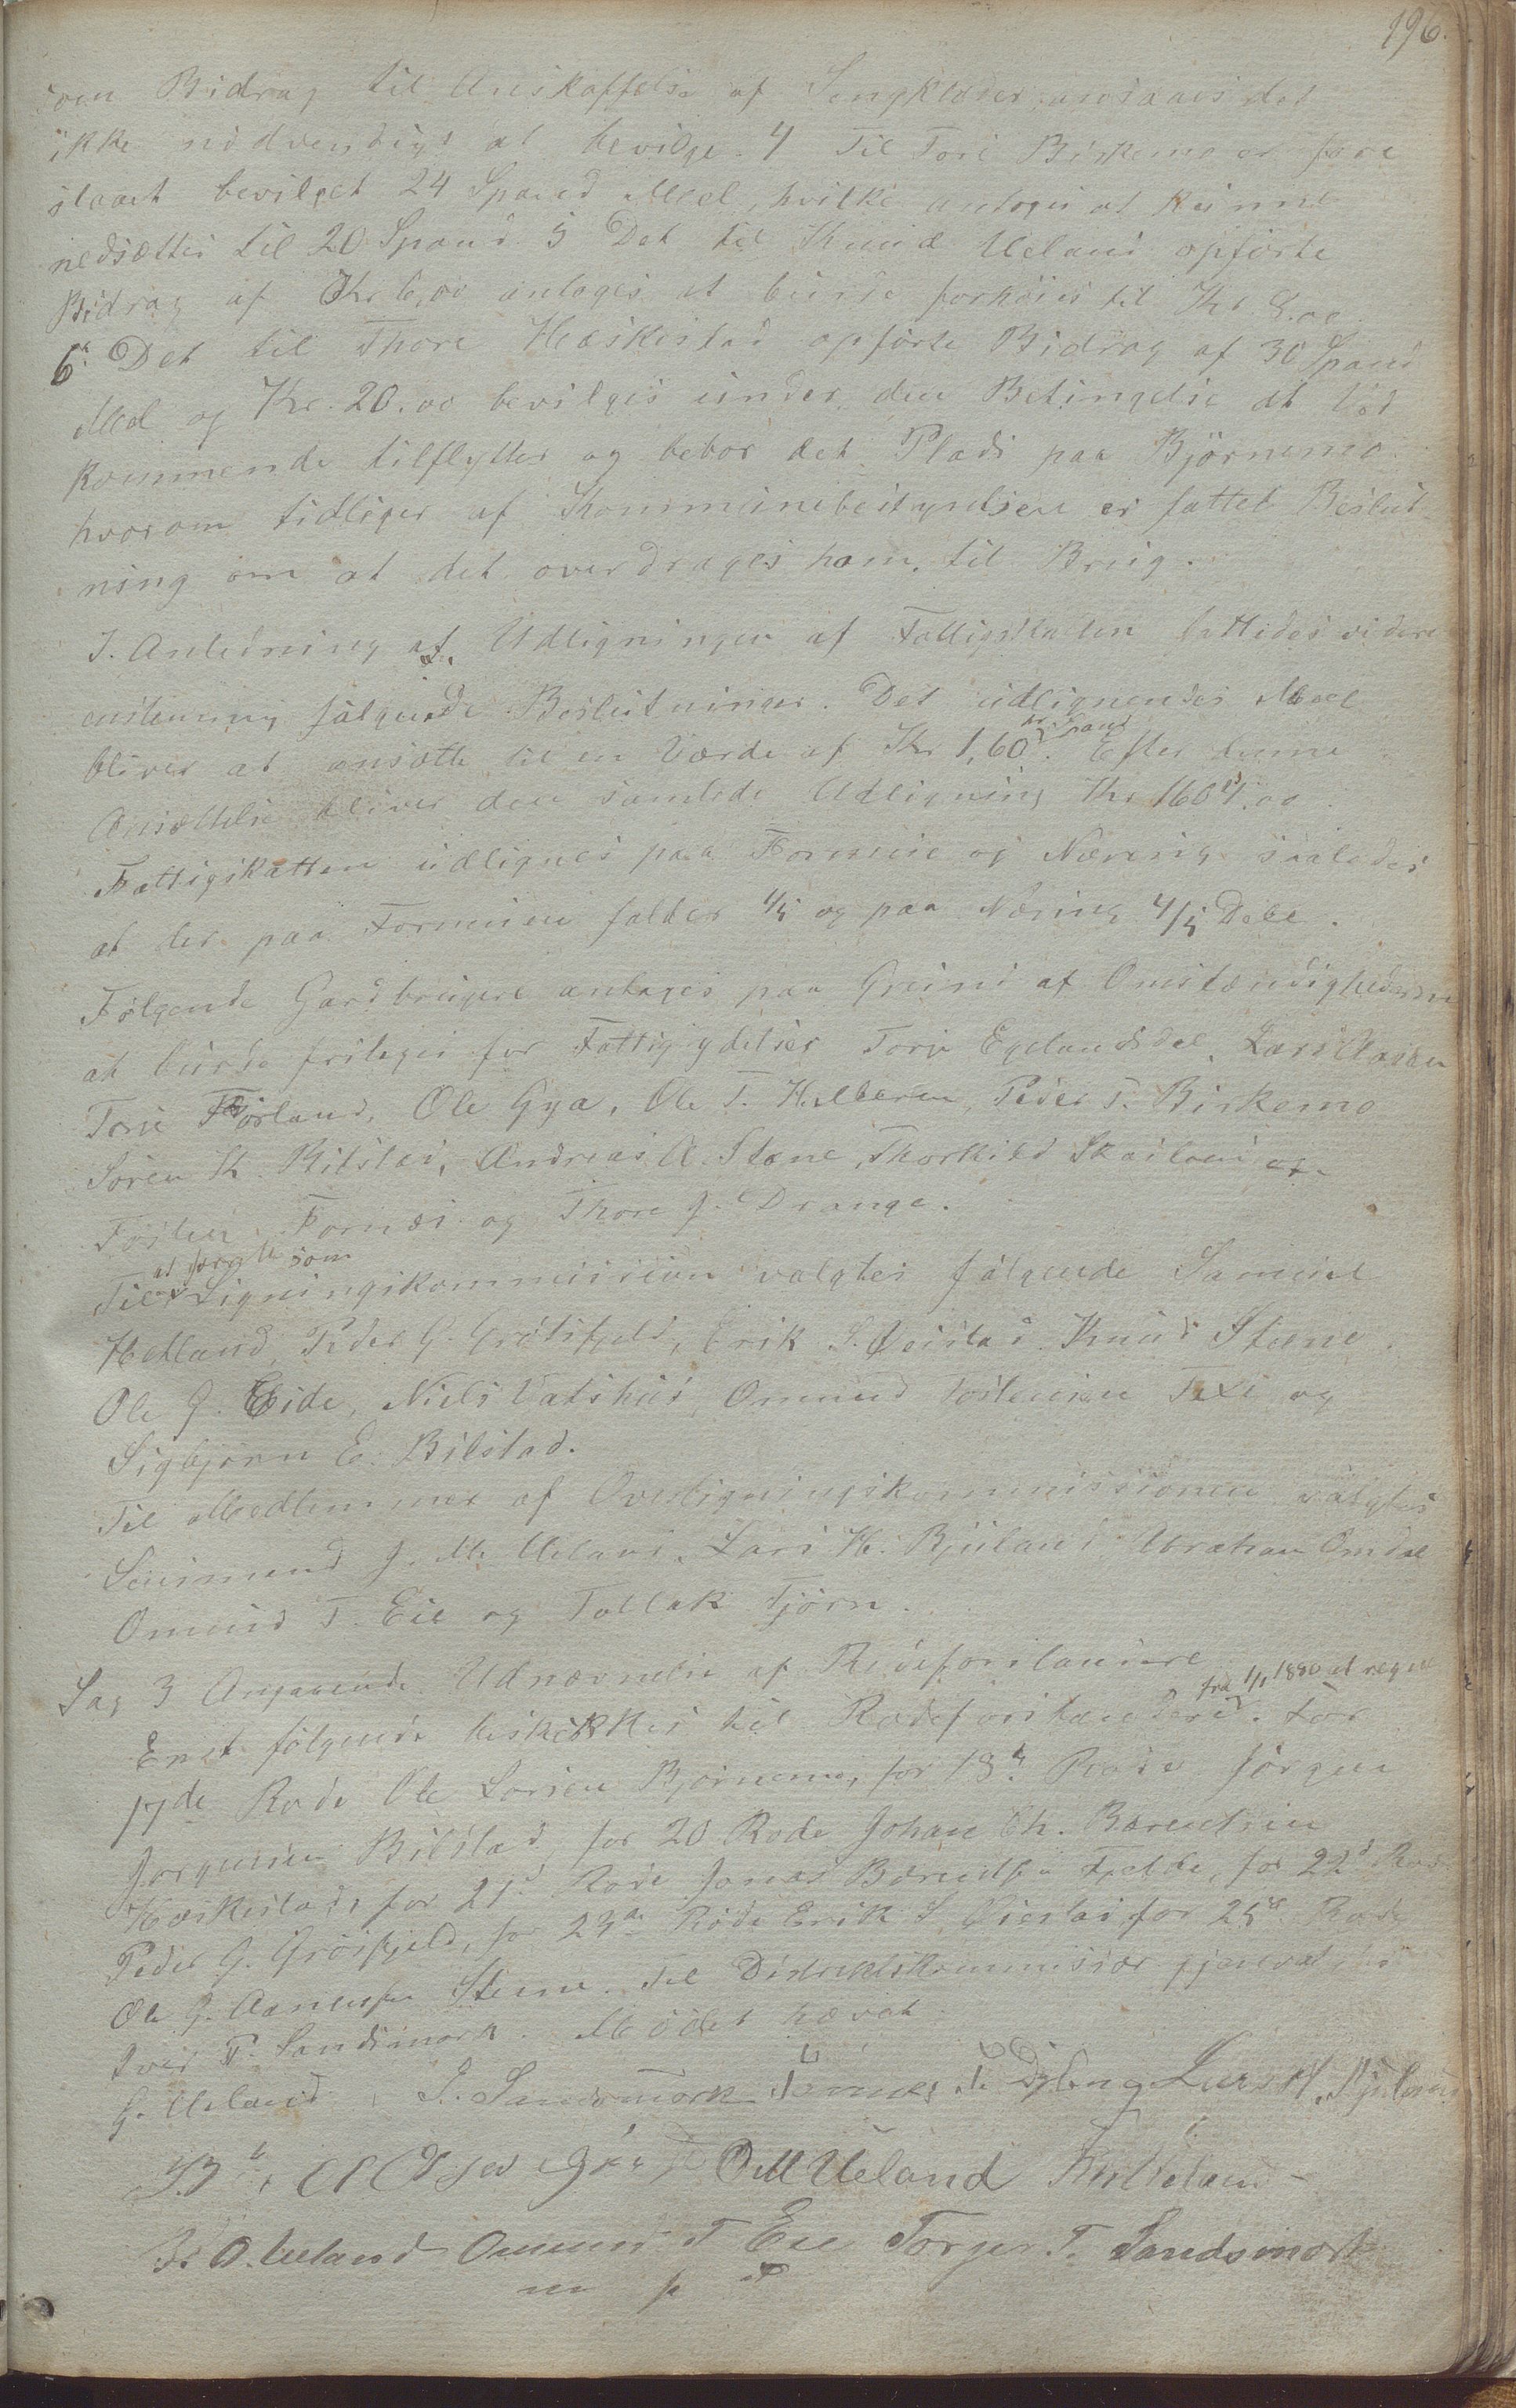 196.
som Bidrag til Anskaffelse af Sengklæder ansaaes det
ikke nødvendigt at bevilge. 4 Til Tore Birkemo er fore
slaaet bevilget 24 Spand Mel, hvilke antoges at kunne
nedsættes til 20 Spand. 5 Det til Knud Ueland opførte
Bidrag af Kr 6,00 antoges at burde forhøies til Kr 8.00.
6. Det til Thore Heskestad opførte Bidrag af 30 Spand
Mel og Kr. 20.00 bevilges under den Betingelse at Ved
kommende tilflytter og bebor det Plads paa Björnemo
hvorom tidliger af Kommunebestyrelsen er fattet Beslut-
ning om at det overdrages ham til Brug.
I. Anledning af Udligningen af Fattigskatten fattedes videre
enstemmig følgende Beslutninger. Det udlignendes Meel
bliver at ansætte til en Værde af Kr 1,60 pr. Spand. Efter denne
Ansættelse bliver den samlede Udligning Kr 1604.00.
Fattigskatten udlignes paa Formue og Næring saaledes
at der paa Formuen falder 1/5 og paa Næring 4/5 Dele.
Følgende Gardbrugere antages paa Grund af Omstændighederne
at burde fritages for Fattigydelser Torje Egelandsdal, Lars Aasen
Tore Förland, Ole Gya, Ole T. Helleren, Peder T. Birkemo
Sören K. Bilstad, Andreas A. Stene, Thorkild Skailand
Tosten Fornes og Thore J. Drange.
Til at forrette som Ligningskommission valgtes følgende Samuel
Hetland, Peder G. Grøtsfjeld, Erik S. Qvistad Knud Stene.
Ole J. Eide, Niels Vatshus Ommund Tostensen Texe og
Sigbjørn E. Bilstad.
Til Medlemmer af Overligningskommissionen valgtes
J. M. Ueland. Lars H. Bjuland Abraham Omdal
Omund T. Eie og Tollak Tjörn.
Sag 3 Angaaende Udnævnelse af Rodeforstandere
Enst. følgende beskikkes til Rodeforstandere fra 1/1 1880 at regne. For
17de Rode Ole Larsen Bjørnemo, for 18de Rode Jörgen
Jørgensen Bilstad, for 20 Rode Johan Ch. Barentsen
Heskestad, for 21d Rode Jonas Berentsen Fjelde, for 22d Rode
Peder G. Grøsfjeld, for 23de Rode Erik S. Qvistad, for 25de Rode
Ole J. Aanensen Stene. Til Distriktskommissær gjenvalgtes
Iver T. Sandsmork. Mödet hævet.
G. Ueland, I. Sandsmork Lars H. Bjuland
O M Ueland
O. Ueland Omund T Eie Torger T. Sandsmork
m p P